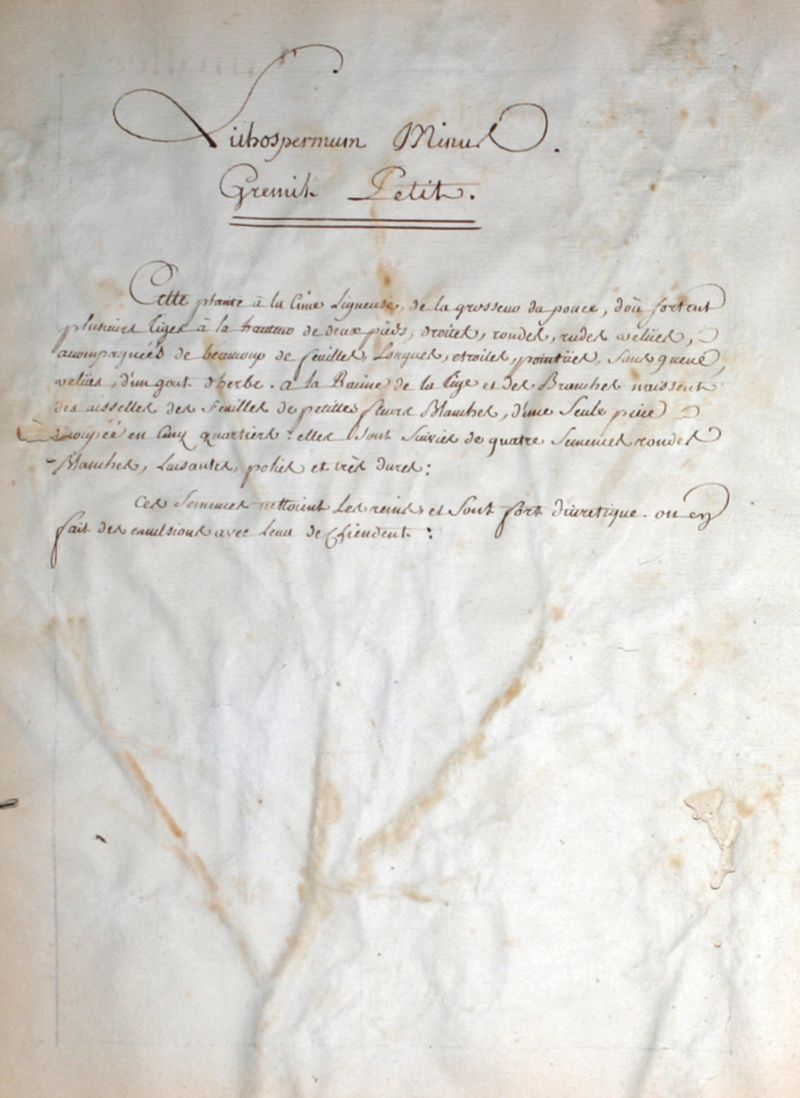 Lithospermum Minus.
Gremil Petit.
Cette plante à la Cime Ligneuse, de la grosseur du pouce, d'où sortent
plusieurs tiges à la hauteur de deux pieds, droites, rondes, rudes velues,
acompagnées de beaucoup de feuilles, Longues, etroites, pointües, Sans queue,
velues, d'un gout d'herbe. à la Racine de la tige et des Branches naissent
des aisselles des feuilles de petittes fleurs Blanches, d'une Seule piece
decoupée en Cinq quartiers: elles Sont Suivies de quatre Semences rondes
Blanches, Luisantes, polies et très dures:
Ces Semences nettoient Les reins et Sont fort diuretique. on en
fait des emulsions avec Leau de Chiendent: